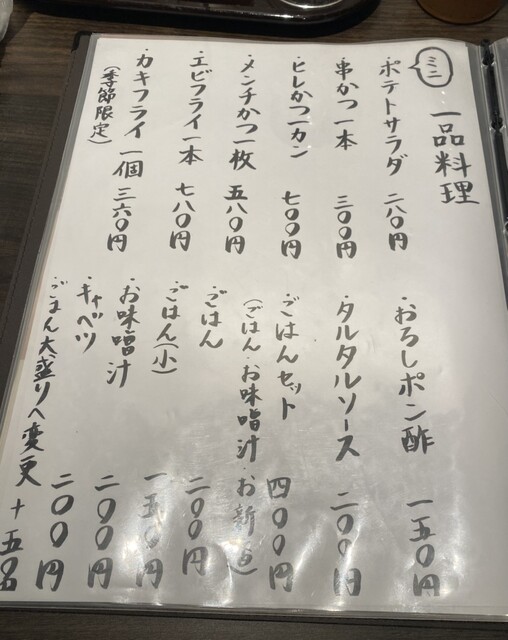 一品料理
ミニ
・ポテトサラダ 二八〇円
・串かつ一本 三〇〇円
・ヒレかつ一カン 七〇〇円
・メンチかつ一枚 五八〇円
・エビフライ一本 七八〇円
・カキフライ一個 三六〇円
(季節限定)
・おろしポン酢 一五〇円
・タルタルソース 二〇〇円
・ごはんセット 四〇〇円
(ごはん・お味噌汁・お新香)
・ごはん 二〇〇円
・ごはん(小) 一五〇円
・お味噌汁 二〇〇円
・キャベツ 二〇〇円
・ごはん大盛りへ変更 +五〇円